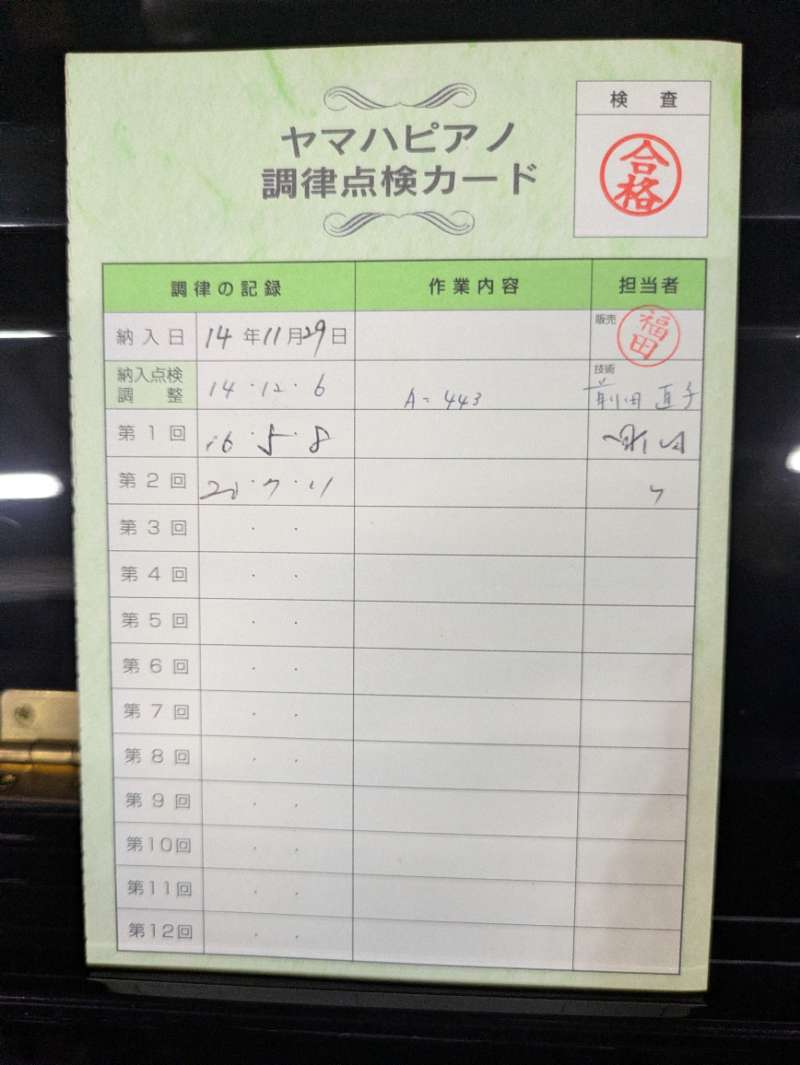 検査
合格
ヤマハピアノ
調律点検カード
調律の記録 作業内容 担当者
納入日 14年11月29日 販売 福田
納入点検調整 14・12・6 A=443 技術 前田直子
第1回 16・5・8
第2回 20・7・11 〃
第3回 ・ ・
第4回 ・ ・
第5回 ・ ・
第6回 ・ ・
第7回 ・ ・
第8回 ・ ・
第9回 ・ ・
第10回 ・ ・
第11回 ・ ・
第12回 ・ ・